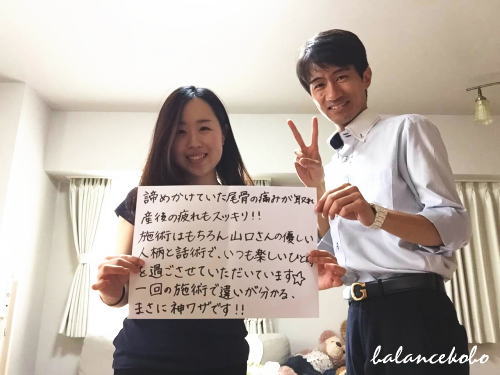 諦めかけていた尾骨の痛みが取れ
産後の疲れもスッキリ!!
施術はもちろん山口さんの優しい
人柄と話術で、いつも楽しいひと
を過ごさせていただいています☆
一回の施術で違いが分かる、
まさに神ワザです!!
G
balancekobo